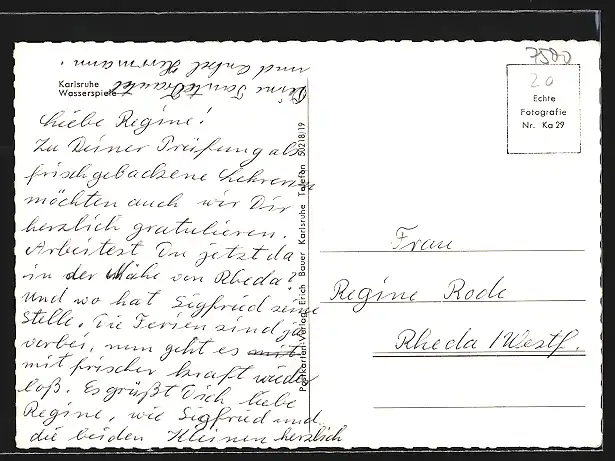 Karlsruhe
Wasserspiele
Liebe Regine!
Zu Deiner Prüfung als
frischgebackene Lehrerin
möchten auch wir Dir
herzlich gratulieren.
Arbeitest Du jetzt da
in der Nähe von Rheda?
Und wo hat Sigfried seine
Stelle. Die Ferien sind ja
vorbei, nun geht es mit
mit frischer Kraft wieder
loß. Es grüßt Dich liebe
Regine, wie Sigfried und
die beiden Kleinen herzlich
Deine Tante Trautel
und Onkel Herrmann!
Postkarten-Verlag Erich Bauer Karlsruhe Telefon 50218/19
7500
20
Echte
Fotografie
Nr. Ka 29
Frau
Regine Rode
Rheda / Westf.